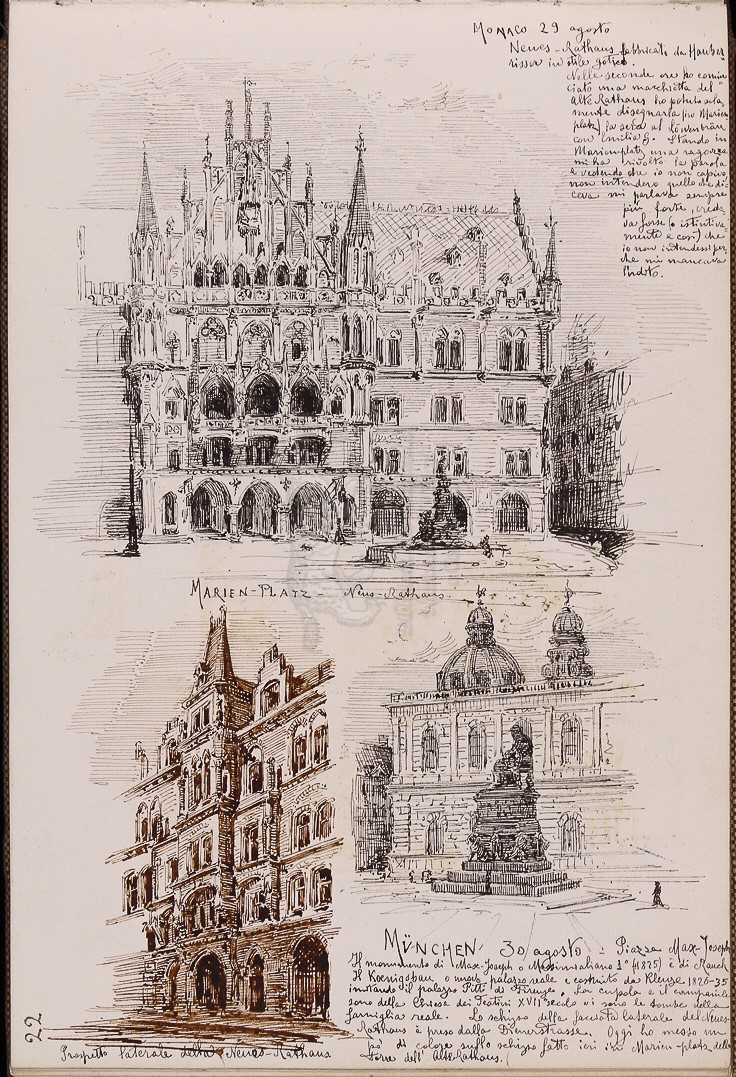 MONACO 29 agosto
Neues-Rathaus fabbricato da Hauber
risser in stile gotico.
Nelle seconde ore ho comin
ciato una macchietta del
Alte Rathaus ho potuto sola
mente disegnarla (in Marien
platz) la sera al Löwenbräu
con Emilia G. Stando in
Marienplatz una ragazza
mi ha rivolto la parola
e vedendo che io non capivo
non intendevo quello che di
ceva mi parlava sempre
più forte, crede
va forse (o istintiva
mente è così) che
io non intendessi per
che mi mancava
l'udito.
MARIEN-PLATZ - Neus-Rathaus.
MÜNCHEN 30 agosto - Piazza Max-Joseph
Il monumento di Max-Joseph o Massimiliano 1° è di Rauch
Il Koenigsbau o nuovo palazzo reale è costruito da Klenze 1826-35
imitando il palazzo Pitti di Firenze - La cupola e il campanile
sono della Chiesa dei Teatini XVII secolo vi sono le tombe della
famiglia reale. Lo schizzo della facciata laterale del Neues
Rathaus è preso dalla Dienerstrasse. Oggi ho messo un
pò di colore sullo schizzo fatto ieri in Marien-platz della
torre dell' Alte Rathaus.
Prospetto laterale della Neues-Rathaus
22